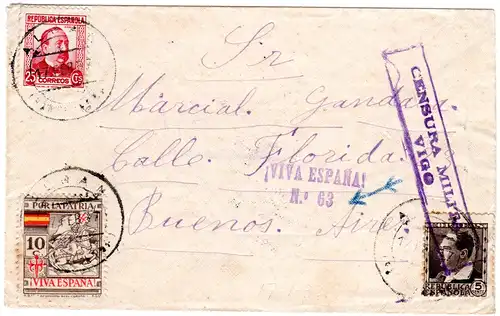 REPÚBLICA ESPAÑOLA
25 CORREOS Cs
Sr
Marcial Gandara
Calle Florida
Buenos Aires
CENSURA MILITAR
VIGO
¡VIVA ESPAÑA!
N.º 63
POR LA PATRIA
10
¡VIVA ESPAÑA!
REPUBLICA ESPAÑOLA 5